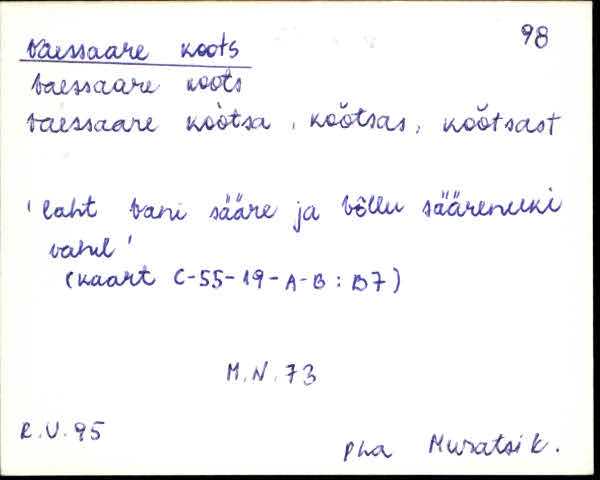 98
Vaessaare koots
vaessaare koots
vaessaare koòtsa, koŏtsas, koŏtsast
'laht vani sääre ja võllu säärenuki
vahel'
(kaart C-55-19-A-B : B7)
M.N. 73
R.V. 95
Pha Muratsi k.